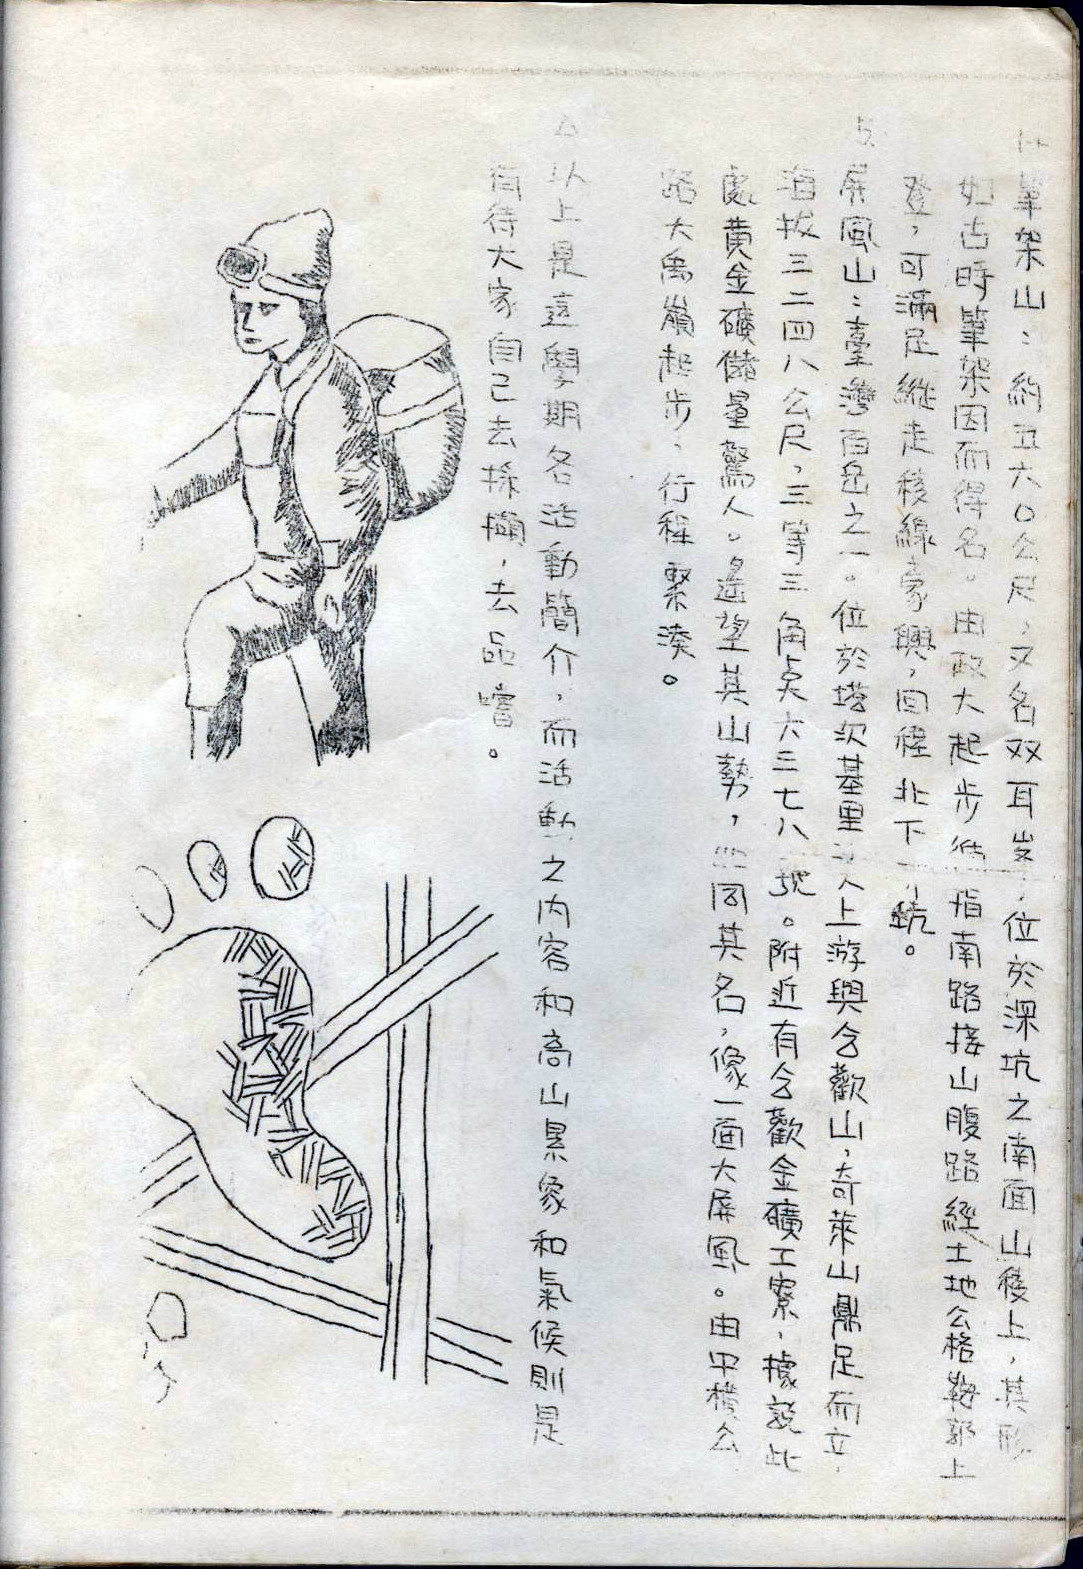 筆架山：約五六〇公尺，又名双耳峯，位於深坑之南面山稜上，其形
如古時筆架因而得名。由政大起步 指南路接山腹路經土地公格鞍部上
登，可滿足縱走稜線豪興，回程北下 坑。
屏風山：臺灣百岳之一。位於塔次基里 上游與合歡山，奇萊山鼎足而立，
海拔三二四八公尺，三等三角點六三七八號。附近有合歡金礦工寮，據說此
處黃金礦儲量驚人。遙望其山勢， 同其名，像一面大屏風。由中橫公
路大禹嶺起步，行程緊湊。
△以上是這學期各活動簡介，而活動之內容和高山景象和氣候則是
有待大家自己去採擷，去品嚐。